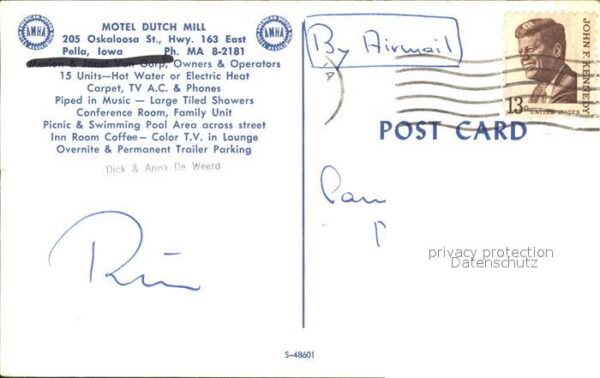 MOTEL DUTCH MILL
205 Oskaloosa St., Hwy. 163 East
Pella, Iowa Ph. MA 8-2181
Owners & Operators
15 Units—Hot Water or Electric Heat
Carpet, TV A.C. & Phones
Piped in Music — Large Tiled Showers
Conference Room, Family Unit
Picnic & Swimming Pool Area across street
Inn Room Coffee — Color T.V. in Lounge
Overnite & Permanent Trailer Parking
Dick & Anna De Weerd
AMHA
AMHA
By Airmail
JOHN F. KENNEDY
13c
UNITED STATES
POST CARD
privacy protection
Datenschutz
S-48601